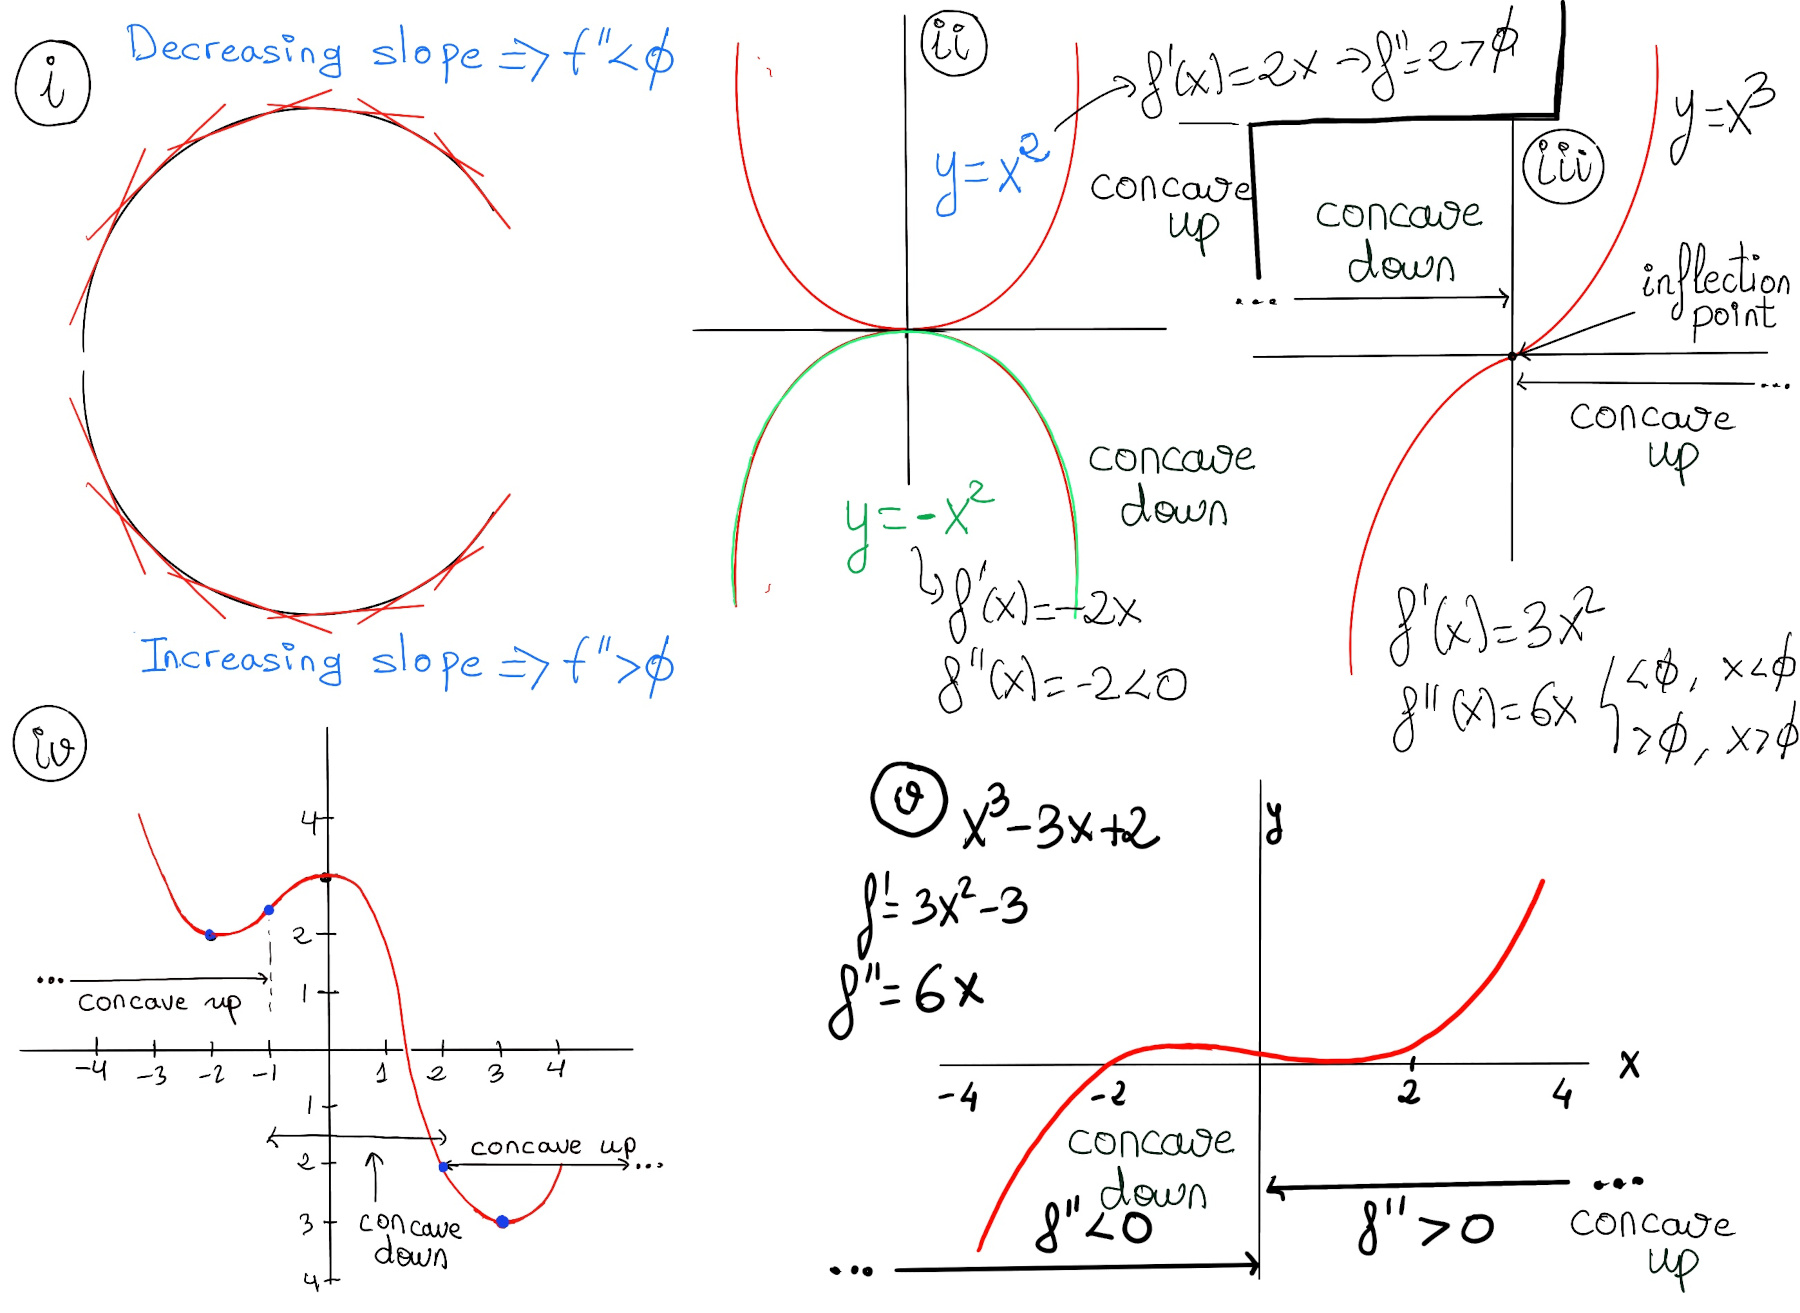 i
Decreasing slope => f''<ϕ
Increasing slope => f''>ϕ
ii
f'(x)=2x → f''=2>ϕ
y=x²
concave
up
concave
down
y=-x²
f'(x)=-2x
f''(x)=-2<0
iii
y=x³
concave
down
...
inflection
point
...
concave
up
f'(x)=3x²
f''(x)=6x { <ϕ, x<ϕ
>ϕ, x>ϕ
iv
4
2
... concave up
1
-4 -3 -2 -1 1 2 3 4
1
2
concave up ...
3
concave
down
4
v
x³-3x+2
f'=3x²-3
f''=6x
y
x
-4 -2 2 4
concave
down
f''<0
...
...
f''>0
concave
up